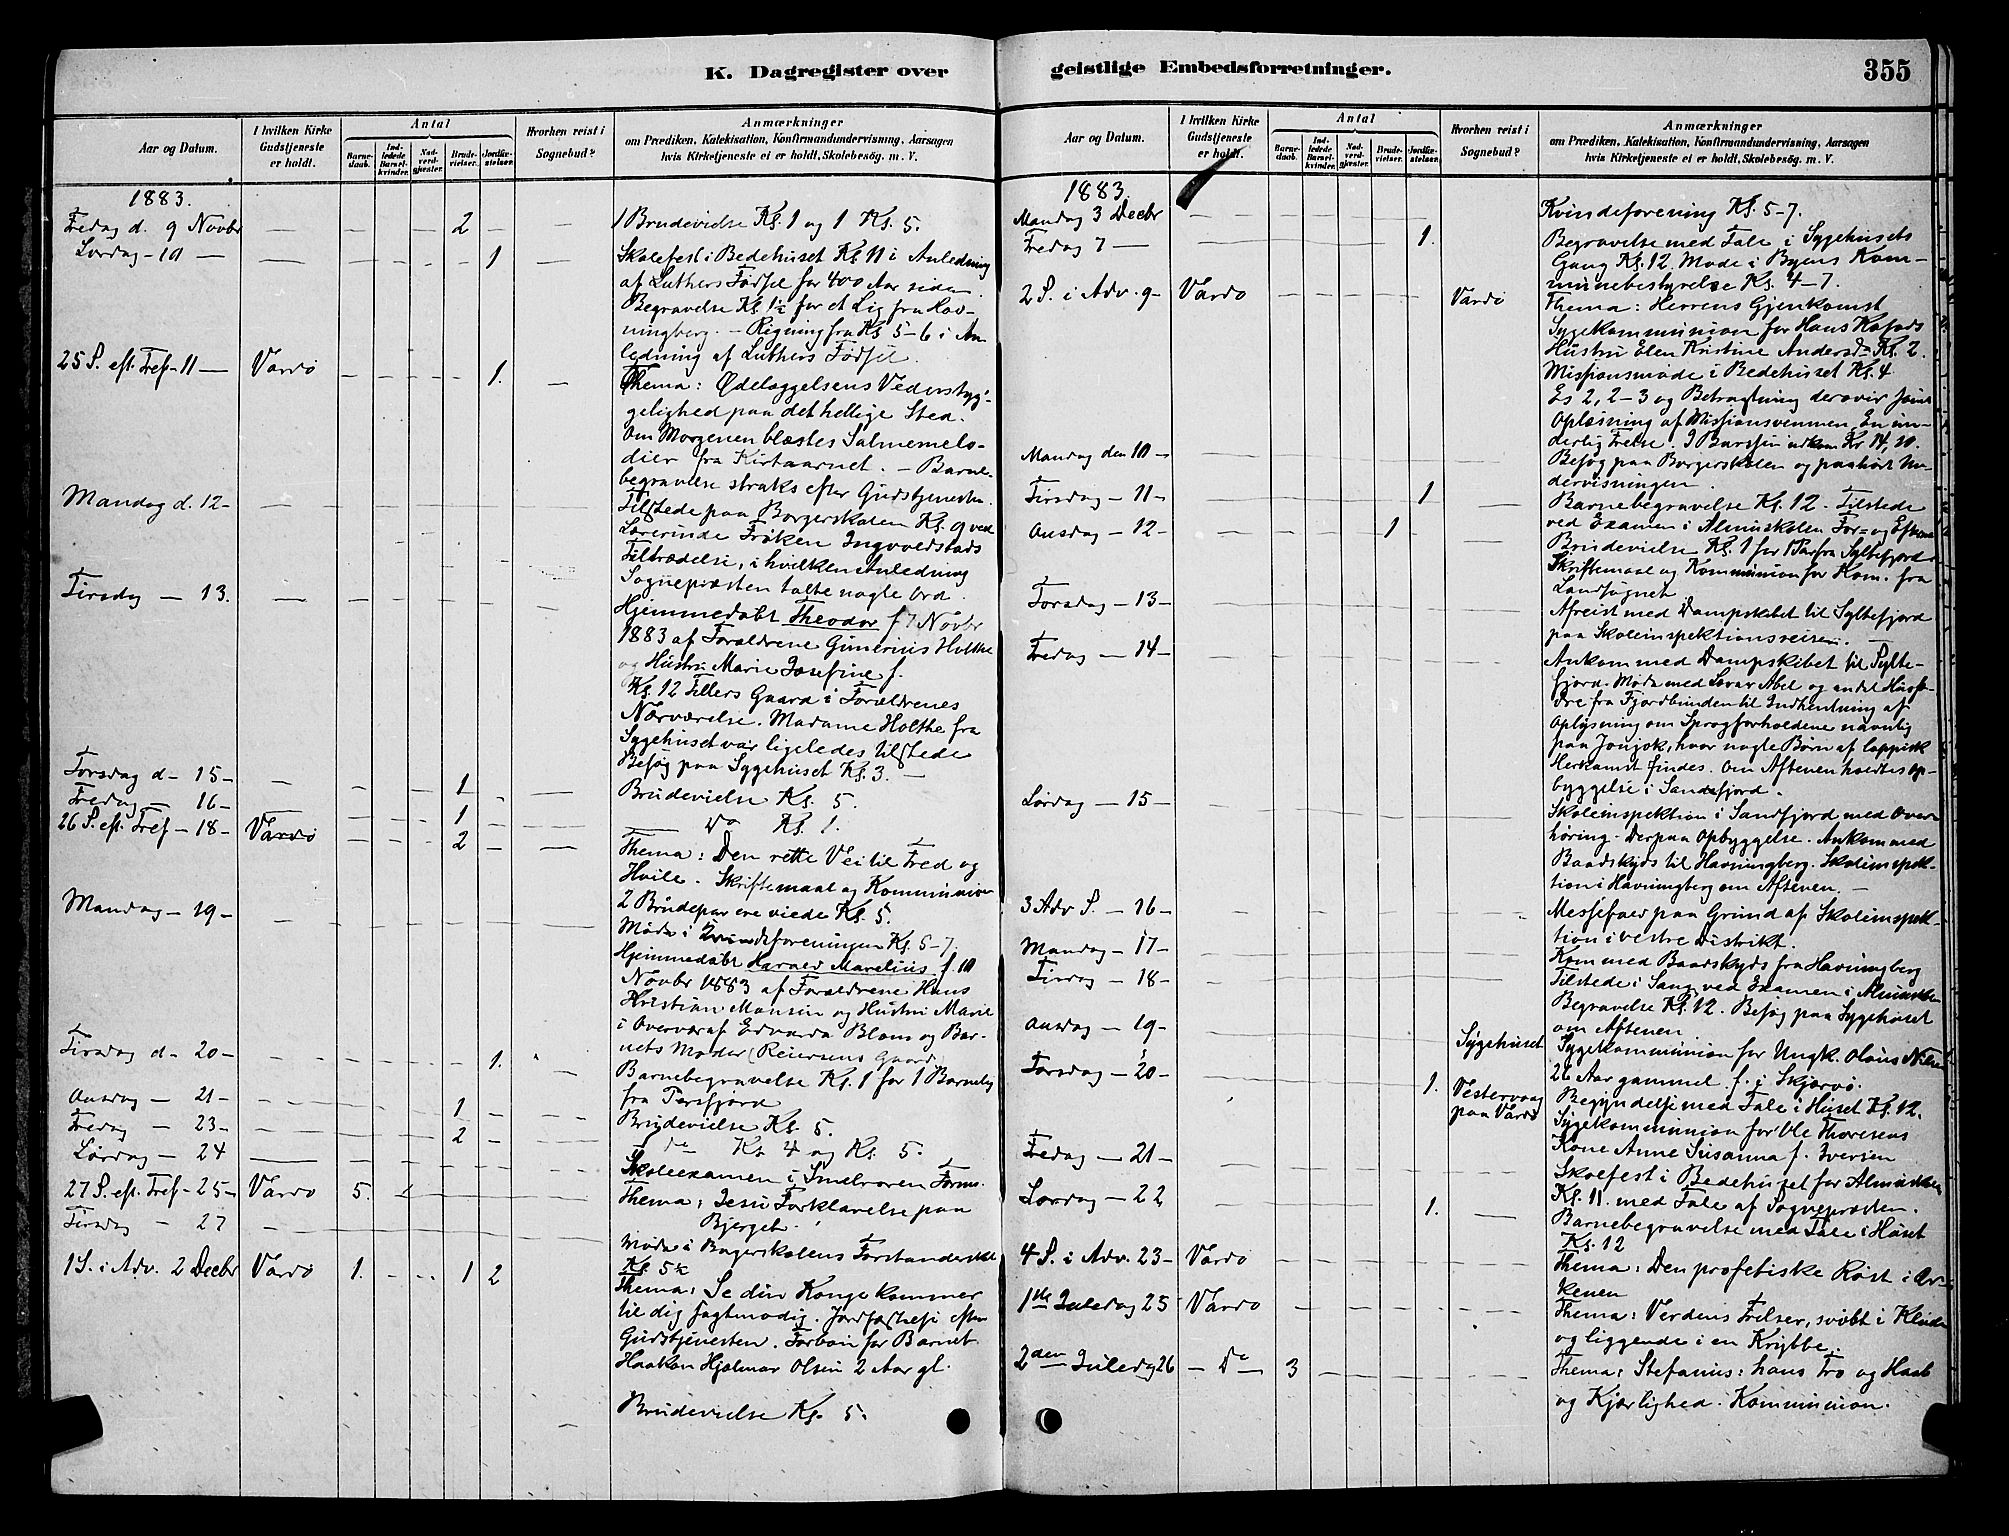 K. Dagregister over
Aar og Datum.
I hvilken Kirke Gudstjeneste er holdt.
Antal
Barnedaab.
Indledede Barselkvinder.
Nadverdgjester.
Brudevielser.
Jordfæstelser.
Hvorhen reist i Sognebud?
Anmærkninger
om Prædiken, Katekisation, Konfirmandundervisning, Aarsagen
hvis Kirketjeneste ei er holdt, Skolebesøg. m. V.
1883.
Fredag d. 9 Novbr — — — — 2 — — 1 Brudevielse Kl. 1 og 1 Kl. 5.
Lørdag - 10 — 1 — Skolefest i Bedehuset Kl. 11 i Anledning
af Luthers Fødsel for 400 Aar siden.
Begravelse Kl. 1½ for et Lig fra Hav-
ningberg. — Rigning fra Kl. 5-6 i An-
ledning af Luthers Fødsel.
25 S. eft. Tref - 11 — Vardø 1. — Thema: Ødelæggelsens Vederstyg-
gelighed paa det hellige Sted.
Om Morgenen blæstes Salmemelo-
dier fra Kirtaarnet. — Barne-
begravelse straks efter Gudstjenesten.
Mandag d. 12 - Tilstede paa Borgerskolen Kl. 9 ved
Lærerinde Frøken Ingvoldstads
Tiltrædelse, i hvilken Anledning
Sognepræsten talte nogle Ord.
Tirsdag — 13. Hjemmedøbt Theodor f. 7 Novbr
1883 af Forældrene Gunerius Holthe
og Hustru Marie Josefine f.
Kl. 12 Tillers Gaard i Forældrenes
Nærværelse. Madame Holthe fra
Sygehuset var ligeledes tilstede
Besøg paa Sygehuset Kl. 3. —
Torsdag d - 15 - 1 Brudevielse Kl. 5.
Fredag — 16 - 1 Do Kl. 1.
26 S. eft. Tref - 18 - Vardø 2 — Thema: Den rette Vei til Fred og
Hvile. Skriftemaal og Kommunion
2 Brudepar ere viede Kl. 5.
Mandag - 19 - Møde i Kvindeforeningen Kl. 5-7.
Hjemmedøbt Harald Marelius f. 10
Novbr 1883 af Forældrene Hans
Kristian Monsen og Hustru Marie
i Overvær af Edvarda Blom og Bar-
nets Moder (Reiersens Gaard)
Tirsdag d - 20 - 1. Barnebegravelse Kl. 1 for 1 Barnelig
fra Persfjord
Onsdag — 21 - 1 Brudevielse Kl. 5.
Fredag — 23 - 2 — do Kl. 4 og Kl. 5.
Lørdag — 24 Skoleexamen i
27 S. eft. Tref - 25 - Vardø 5. Thema: Jesu Forklarelse paa
Bjerget.
Tirsdag — 27 Møde i Borgerskolens Forstanderskb
Kl. 5½
1 S. i Adv. 2 Decbr Vardø 1. 1 2 Thema: Se din Konge kommer
til dig sagtmodig. Jordfæstelse efter
Gudstjenesten. Forbøn for Barnet
Haakon Hjalmar Olsen 2 Aar gl.
Brudevielse Kl. 5.
geistlige Embedsforretninger.
355
Aar og Datum.
I hvilken Kirke Gudstjeneste er holdt.
Antal
Barnedaab.
Indledede Barselkvinder.
Nadverdgjester.
Brudevielser.
Jordfæstelser.
Hvorhen reist i Sognebud?
Anmærkninger
om Prædiken, Katekisation, Konfirmandundervisning, Aarsagen
hvis Kirketjeneste ei er holdt, Skolebesøg. m. V.
1883.
Mandag 3 Decbr Kvindeforening Kl. 5-7.
Fredag 7 — 1. Begravelse med Tale i Sygehusets
Gang Kl. 12. Møde i Byens Kom-
munebestyrelse Kl. 4-7.
2 S. i Adv. 9 - Vardø Vardø Thema: Herrens Gjenkomst
Sygekommunion for Hans Kofods
Hustru Elen Kristine Andersd. Kl. 2.
Missionsmøde i Bedehuset Kl. 4
Es 2, 2-3 og Betragtning derover samt
Oplæsning af Missionsvennen. En un-
derlig Frelse. I Bøssen indkom Kr. 14,20.
Mandag den 10 - Besøg paa Borgerskolen og paahørt Un-
dervisningen.
Tirsdag - 11 - 1 Barnebegravelse Kl. 12. Tilstede
ved Examen i Almuskolen For- og Efterm.
Onsdag - 12 - 1 Brudevielse Kl. 1 for 1 Par fra Syltefjord
Skriftemaal og Kommunion for Kom. fra
Landsognet
Torsdag - 13 - Afreist med Dampskibet til Syltefjord
paa Skoleinspektionsreisen. —
Fredag - 14 - Ankom med Dampskibet til Sylte-
fjord. Møde med Lærer Abel og endel Husfæ-
dre fra Fjordbunden til Indhentning af
Oplysning om Sprogforholdene navnlig
paa Jonjok, hvor nogle Børn af lappisk
Herkomst findes. Om Aftenen holdtes Op-
byggelse i Sandfjord.
Lørdag — 15 - Skoleinspektion i Sandfjord med Over-
høring. Derpaa Opbyggelse. Ankom med
Baadskyds til Havningberg. Skoleinspek-
tion i Havningberg om Aftenen. —
3 Adv S. — 16 - Messefald paa Grund af Skoleinspek-
tion i vestre Distrikt.
Mandag — 17 - Kom med Baadskyds fra Havningberg
Tirsdag — 18 - Tilstede i Sang ved Examen i Almuskolen
Begravelse Kl. 12. Besøg paa Sygehuset
om Aftenen
Onsdag — 19 - Sygehuset Sygekommunion for Ungk. Olaus Nilsen
26 Aar gammel. f. i Skjervø.
Torsdag — 20 - 1. Vestervaag
paa Vardø
med Tale i Huset Kl. 12.
Sygekommunion for Ole Thoresens
Kone Anne Susanna f. Iversen
Fredag — 21 - Skolefest i Bedehuset for Almuskolen
Kl. 11 med Tale af Sognepræsten.
Lørdag — 22 1. Barnebegravelse med Tale i Huset
Kl. 12
4 S. i Adv. 23 - Vardø Thema: Den profetiske Røst i Ør-
kenen
1ste Juledag 25 Vardø Thema: Verdens Frelser, svøbt i Klude
og liggende i en Krybbe.
2den Juledag 26 — Do — 3 Thema: Stefanus: hans Tro og Haab
og Kjærlighed. Kommunion.